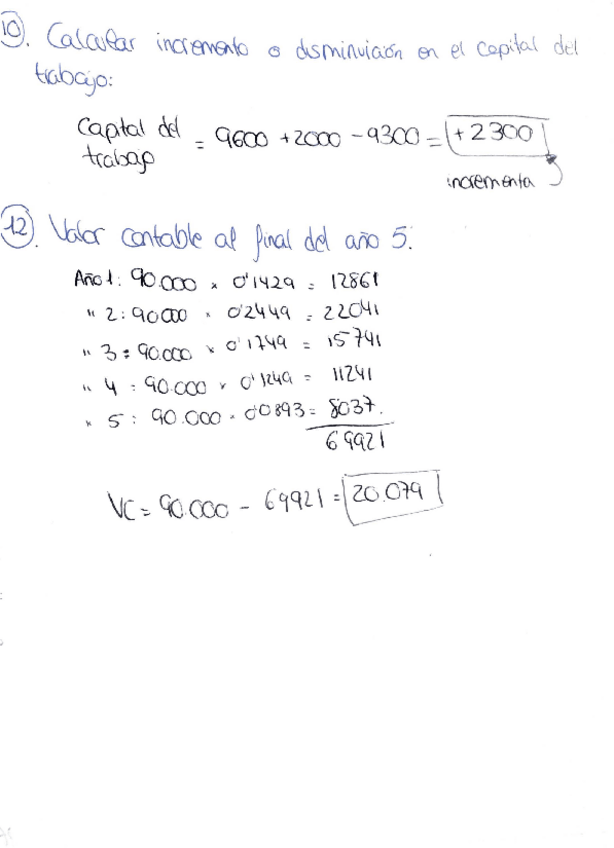 10. Calcular incremento o disminuición en el capital del
trabajo:
Capital del
trabajo = 9600 + 2000 - 9300 = +2300
incrementa
12. Valor contable al final del año 5.
Año 1: 90.000 x 0'1429 = 12861
" 2: 90000 x 0'2449 = 22041
" 3: 90.000 x 0'1749 = 15741
" 4: 90.000 x 0'1249 = 11241
" 5: 90.000 · 0'0893 = 8037.
69921
VC = 90.000 - 69921 = 20.079